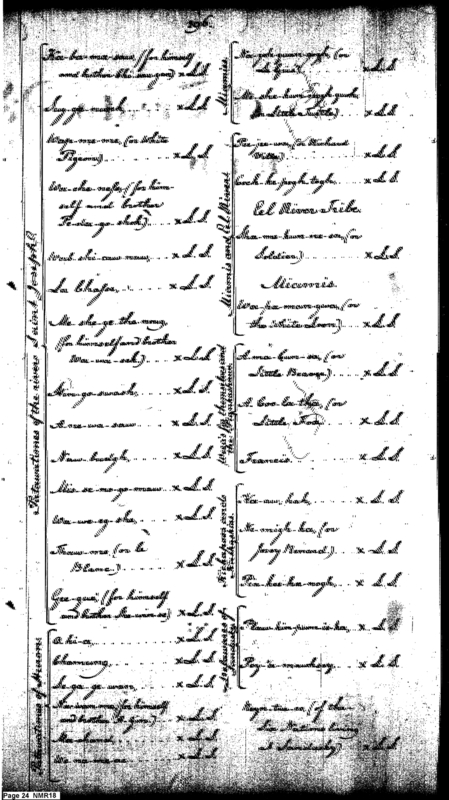 296.
Putawatimes of the river Saint Joseph.
Ka-ba-ma-saw, (for himself
and brother Chi-sau-gan) x L.S.
Sug-ga-nunk, x L.S.
Wap-me-me, (or White
Pigeon) x L.S.
Wa-che-ness, (for him-
self and brother
Pe-dar-go-shok) x L.S.
Wab-shi-caw-naw, x L.S.
La Chasse, x L.S.
Me-she-ge-the-nogh,
(for himself and brother
Wa-wa-sek) x L.S.
Hin-go-swash, x L.S.
A-ne-wa-saw x L.S.
Naw-budgh, x L.S.
Mis-se-no-go-maw x L.S.
Wa-we-eg-she, x L.S.
Thaw-me, (or le
Blanc,) x L.S.
Gee-que, (for himself
and brother She-win-se) x L.S.
Putawatimes of Huron.
O-ki-a, x L.S.
Chamung, x L.S.
Se-ga-ge-wan, x L.S.
Na-naw-me (for himself
and brother A. Gin,) x L.S.
Ma-chand, x L.S.
Wa-na-me-ae x L.S.
Miamis
Na-goh-quan-gogh (or
Le Gris) x L.S.
Me-she-kun-nogh-quoh,
(or Little Turtle) x L.S.
Miamis and Eel Rivers
Pee-jee-wa, (or Richard
Ville) x L.S.
Coch-ke-pogh-togh, x L.S.
Eel River Tribe.
Sha-me-kun-ne-sa, (or
Soldier) x L.S.
Miamis.
Wa-pa-man-gwa, (or
the White Loon) x L.S.
Weeas for themselves and
the Piankeshaws
A-ma-cun-sa, (or
Little Beaver,) x L.S.
A-Coo-la-tha, (or
Little Fox) x L.S.
Francis x L.S.
Kickapoos and
Kaskaskias.
Kee-aw-hah, x L.S.
Ne-migh-ka, (or
Josey Renard,) x L.S.
Pai-kee-ka-nogh, x L.S.
Delawares of
Sandusky
Haw-kin-pum-is-ka, x L.S.
Pey-a-mawksey, x L.S.
Reyn-tue-co, (of the
Six Nations living
at Sandusky) x L.S.
Page 24 NMR18